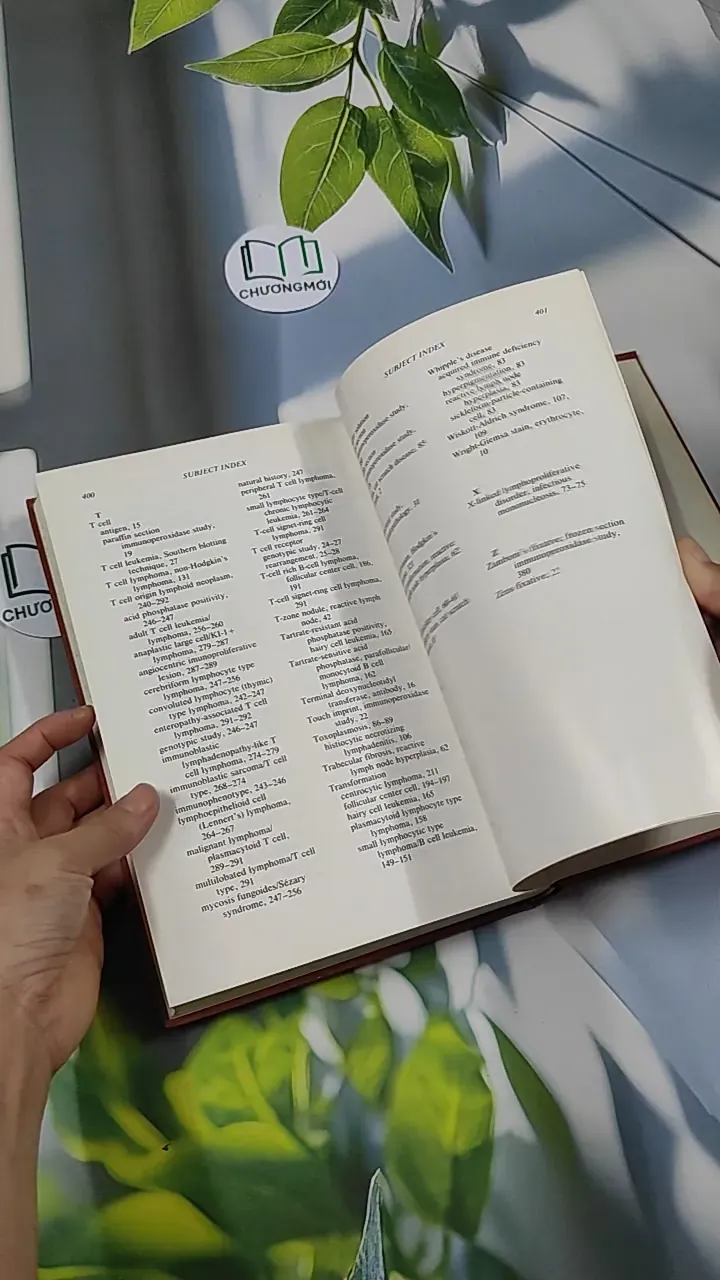 CHƯƠNGMỚI
CHƯƠ
400
SUBJECT INDEX
T
T cell
antigen, 15
paraffin section
immunoperoxidase study,
19
T cell leukemia, Southern blotting
technique, 27
T cell lymphoma, non-Hodgkin's
lymphoma, 131
T cell origin lymphoid neoplasm,
240–292
acid phosphatase positivity,
246–247
adult T cell leukemia/
lymphoma, 256–260
anaplastic large cell/KI-1+
lymphoma, 279–287
angiocentric imunoproliferative
lesion, 287–289
cerebriform lymphocyte type
lymphoma, 247–256
convoluted lymphocyte (thymic)
type lymphoma, 242–247
enteropathy-associated T cell
lymphoma, 291–292
genotypic study, 246–247
immunoblastic
lymphadenopathy-like T
cell lymphoma, 274–279
immunoblastic sarcoma/T cell
type, 268–274
immunophenotype, 243–246
lymphoepithelioid cell
(Lennert's) lymphoma,
264–267
malignant lymphoma/
plasmacytoid T cell,
289–291
multilobated lymphoma/T cell
type, 291
mycosis fungoides/Sézary
syndrome, 247–256
natural history, 247
peripheral T cell lymphoma,
261
small lymphocyte type/T-cell
chronic lymphocytic
leukemia, 261–264
T-cell signet-ring cell
lymphoma, 291
T cell receptor
genotypic study, 24–27
rearrangement, 25–28
T-cell rich B-cell lymphoma,
follicular center cell, 186,
191
T-cell signet-ring cell lymphoma,
291
T-zone nodule, reactive lymph
node, 42
Tartrate-resistant acid
phosphatase positivity,
hairy cell leukemia, 165
Tartrate-sensitive acid
phosphatase, parafollicular/
monocytoid B cell
lymphoma, 162
Terminal deoxynucleotidyl
transferase, antibody, 16
Touch imprint, immunoperoxidase
study, 22
Toxoplasmosis, 86–89
histiocytic necrotizing
lymphadenitis, 106
Trabecular fibrosis, reactive
lymph node hyperplasia, 62
Transformation
centrocytic lymphoma, 211
follicular center cell, 194–197
hairy cell leukemia, 165
plasmacytoid lymphocyte type
lymphoma, 158
small lymphocytic type
lymphoma/B cell leukemia,
149–151
SUBJECT INDEX
401
Whipple's disease
acquired immune deficiency
syndrome, 83
hyperpigmentation, 83
reactive lymph node
hyperplasia, 83
sickleform-particle-containing
cell, 83
Wiskott-Aldrich syndrome, 107,
109
Wright-Giemsa stain, erythrocyte,
10
X
X-linked lymphoproliferative
disorder, infectious
mononucleosis, 73–75
Z
Zamboni's fixative, frozen section
immunoperoxidase study,
380
Zinc fixative, 22